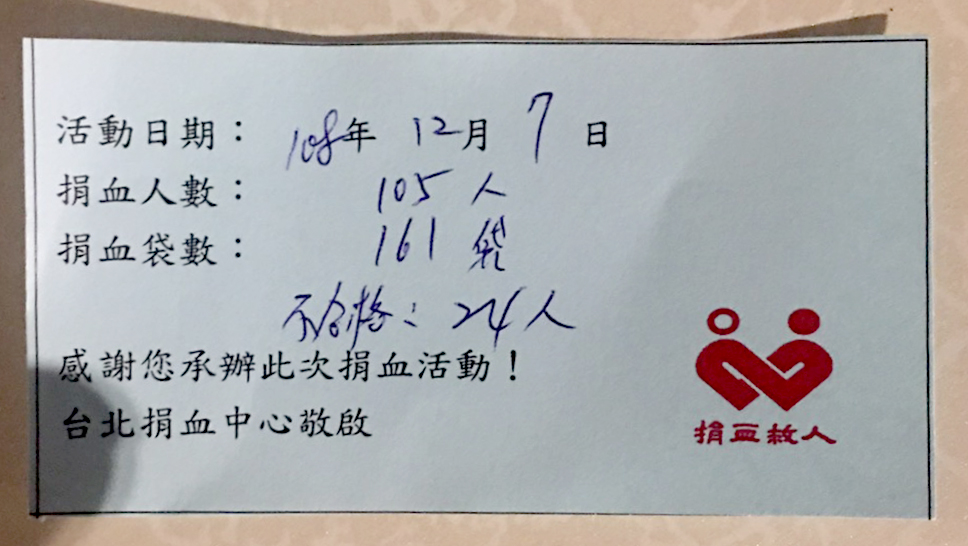 活動日期：108年 12月 7日
捐血人數：105人
捐血袋數：161袋
不合格：24人
感謝您承辦此次捐血活動！
台北捐血中心敬啟
捐血救人